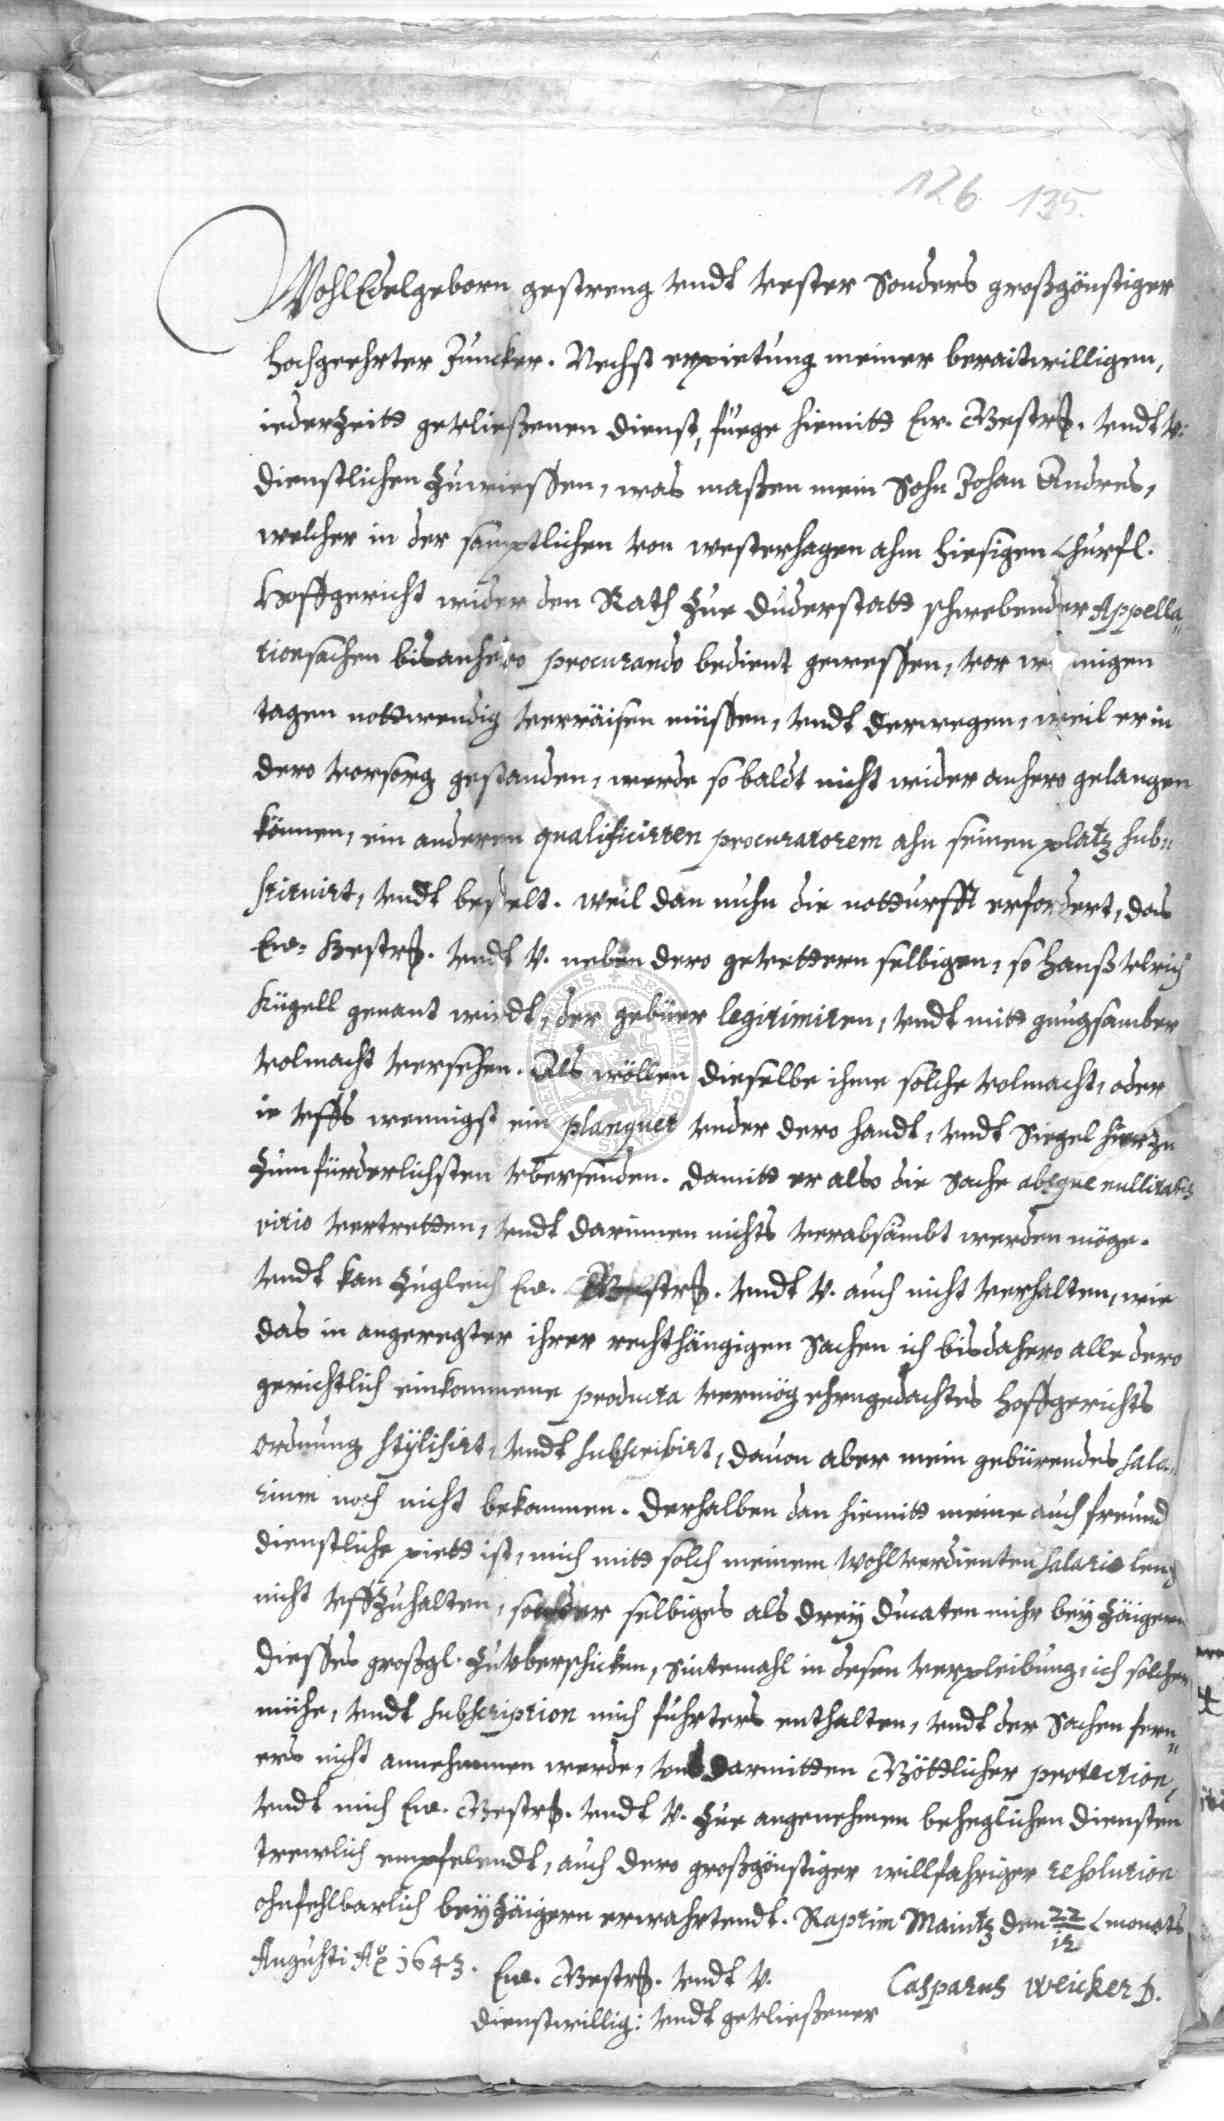 126. 135.
WohlEdelgeborn gestreng vndt vester Sonders großgönstiger
hochgeehrter Juncker. Nechst erpietung meiner beraitwilligen,
iederzeitt gevließenen dienst, füege hiemitt Ew. Gestr. vndt V.
dienstlichen zuwiessen, was maßen mein Sohn Johan Andres,
welcher in der samptlichen von westerhagen ahm hiesigen Churfl.
Hoffgericht wider den Rath zue Duderstatt schwebender Appella„
tionsachen bisanhero procurando bedient gewessen, vor wenigen
tagen nottwendig verräisen müssen, vndt derwegen, weil er in
dero vorsorg gestanden, werde so baldt nicht wider anhero gelangen
können, ein anderen qualificirten procuratorem ahn seinen platz sub„
stituirt, vndt bestelt. weil dan nuhn die notturfft erfordert, das
Ew. Gestr. vndt V. neben dero gevettern selbigen, so Hanß Vlrich
Kügell genant wirdt, der gebüer legitimiren, vndt mitt gnugsamber
volmacht versehen. Als wöllen dieselbe ihme solche volmacht, oder
ie vffs wennigst ein planquet vnder dero handt, vndt Siegel hierzu
zum fürderlichsten vbersenden. damitt er also die Sache absque nullitatis
vitio vertretten, vndt darinnen nichts verabsämbt werden möge.
vndt kan zugleich Ew. Gestr. vndt V. auch nicht verhalten, wie
das in angeregter ihrer rechthängigen Sachen ich bisdahero alle dero
gerichtlich einkommene producta vermög ehrngedachtes Hoffgerichts
ordnung stÿlisirt, vndt subscribirt, dauon aber mein gebürendes sala„
rium noch nicht bekommen. derhalben dan hiemitt meine auch freund
dienstliche pitt ist, mich mitt solch meinem wohlverdienten salario leng
nicht vffzuhalten, sonder selbiges als dreÿ ducaten mihr beÿ zäigern
diesses großgl. zuvberschicken, Sintemahl in desen verpleibung, ich solcher
mühe, vndt subscription mich fuhrters enthalten, vndt der Sachen fern„
ers nicht annehmen werde, vns darmitten Göttlicher protection,
vndt mich Ew. Gestr. vndt V. zue angenehmen beheglichen diensten
trewlich empfelendt, auch dero großgönstiger willfahriger resolution
ohnfehlbarlich beÿ zäigern erwahrtendt. Raptim Maintz den 22/12 monats
Augusti Ao 1643.
Ew. Gestr. vndt V.
dienstwillig: vndt gevließener
Casparus Weicker D.